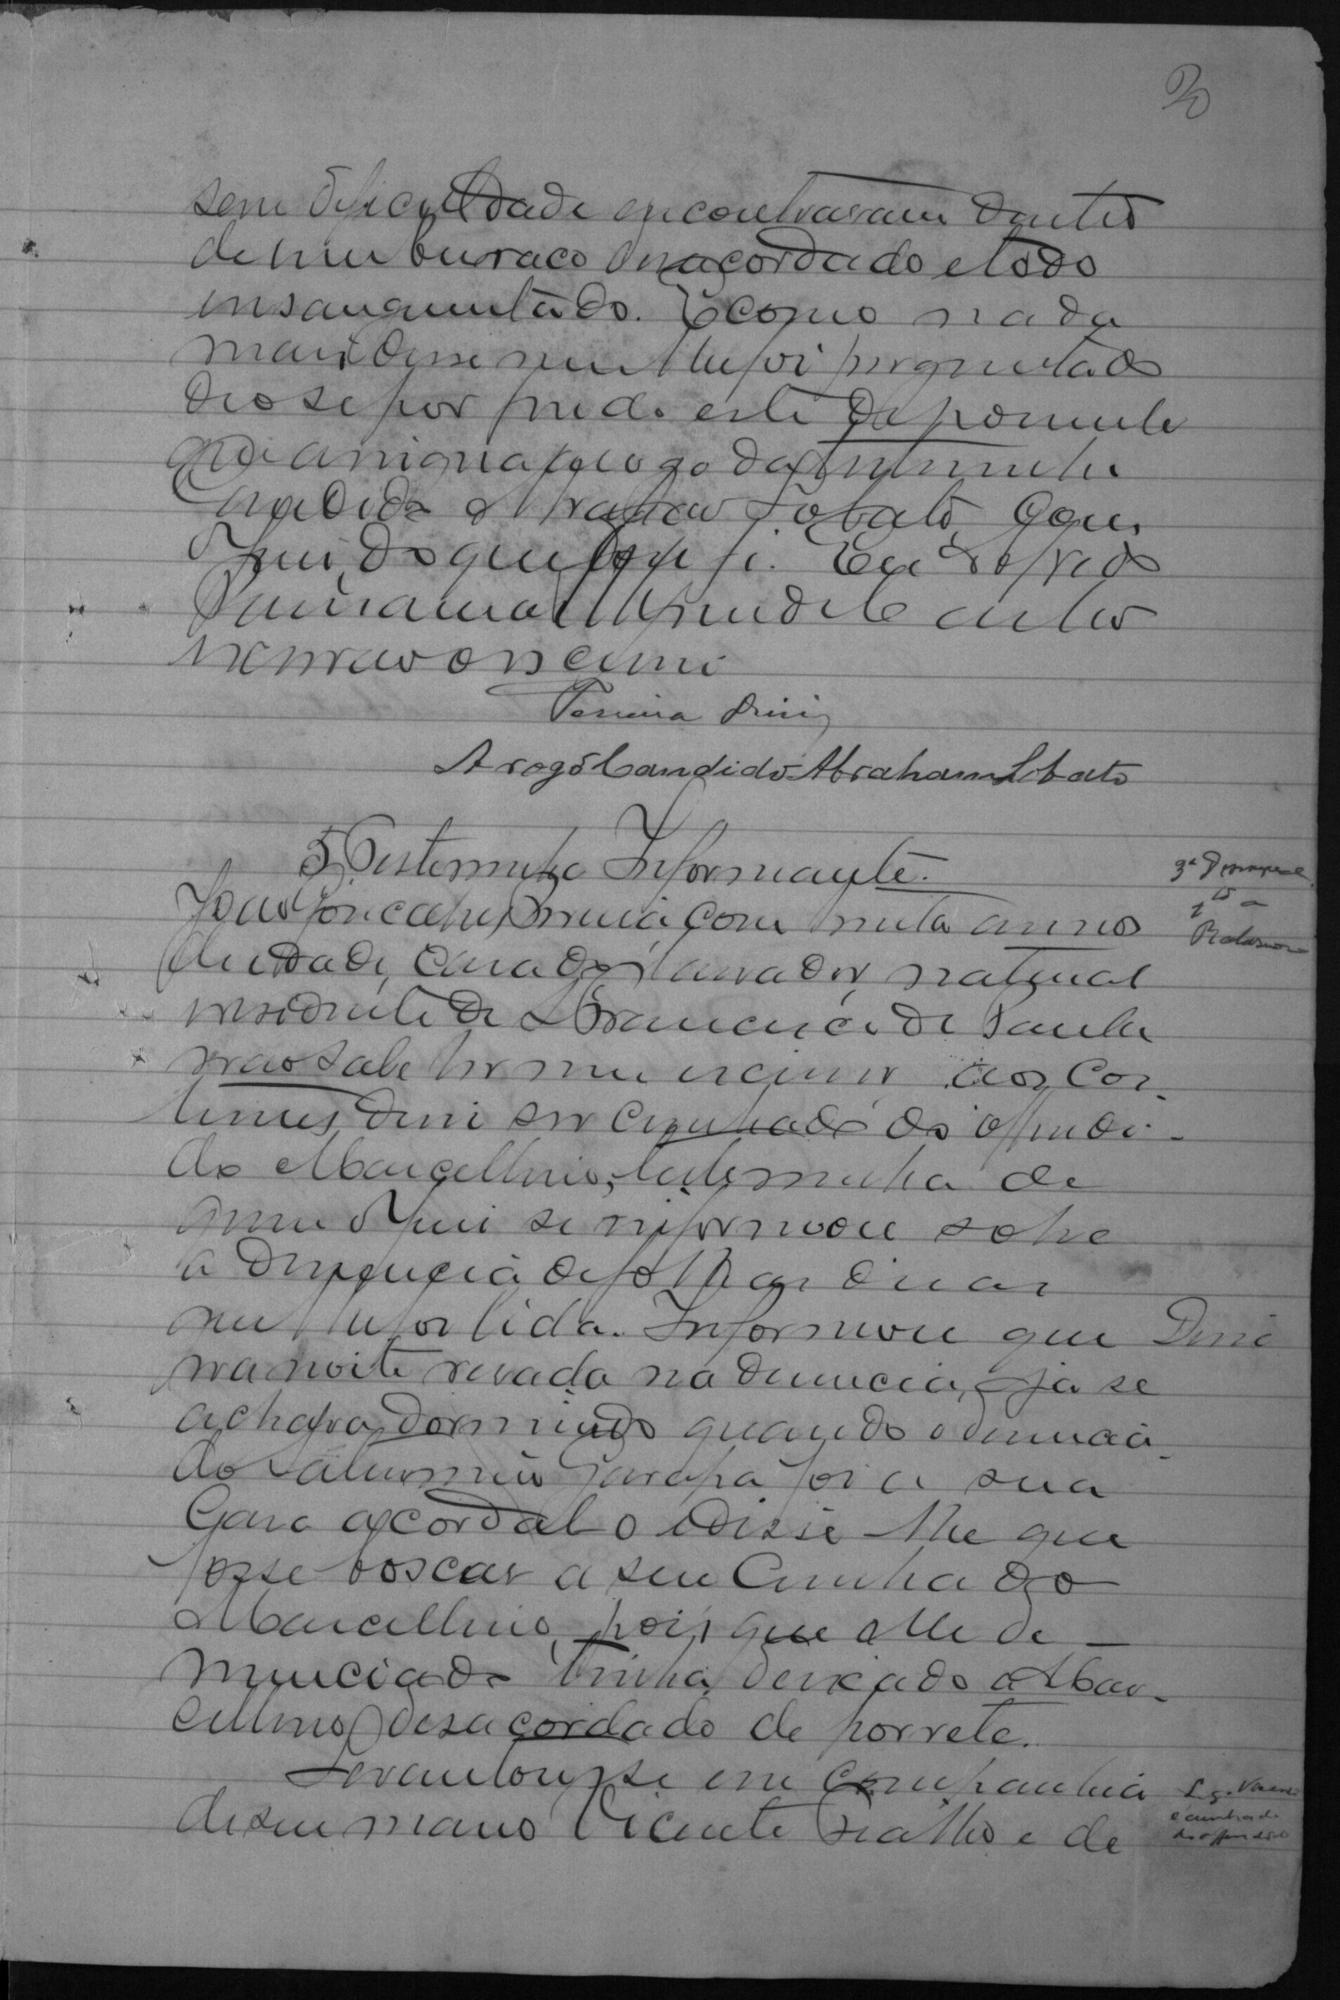 20
sem deficuldade encontraram dentro
de hum buraco desacordado e todo
insanguentado. E como nada
mais disse nem lhe foi perguntado
deo se por findo este depoimento
que assigna a rogo da testemunha
Candido Abraham Lobato, com o
Juiz, do que dou fé. Eu
escrivão o escrevi
Pereira Diniz
A rogo Candido Abraham Lobato
5 Testemunha Informante.
João Gonçalves com trinta annos
de idade, casado, lavrador, natural
residente de S Francisco de Paula
não sabe ler nem escrever, aos cos-
tumes disse ser cunhado do offendi-
do Marcellino, testemunha de
quem o Juiz se informou sobre
a denuncia de folhas duas
que lhe foi lida. Informou que
na noite resada na denuncia, já se
achava dormindo quando o denuncia-
do Saturnino Garapa foi a sua
casa acordal o e disse lhe que
fosse boscar a seu cunhado
Marcellino, pois que elle de-
nunciado tinha deixado a Mar-
cellino desacordado de porrete.
Levantou-se em companhia
de seu mano Vicente Fialho e de